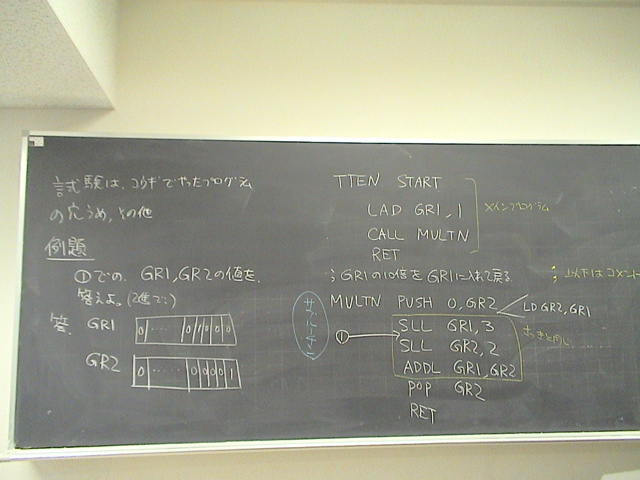 試験は、コウギでやったプログラム
の穴うめ、その他
例題
①での、GR1, GR2の値を、
答えよ。(2進で:)
答. GR1 0 ...... 0 1 0 0 0
GR2 0 ...... 0 0 0 0 1
TTEN START
LAD GR1, 1
CALL MULTN
RET
メインプログラム
; GR1の10倍をGR1に入れて戻る
; 以下はコメント
サブルーチン
MULTN PUSH 0, GR2
LD GR2, GR1
① SLL GR1, 3
SLL GR2, 2
ADDL GR1, GR2
さっきと同じ
POP GR2
RET